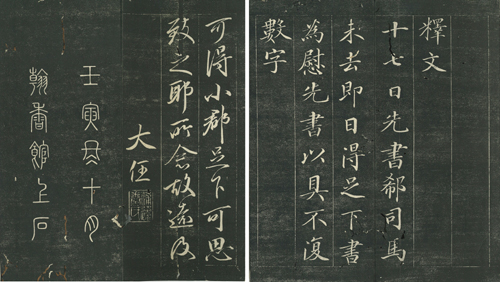 釋文
十七日先書郗司馬
未去即日得足下書
為慰先書以具不復
數字
可得小郡足下可思
致之耶所念故遠及
大任
壬寅冬十月
翰香館上石